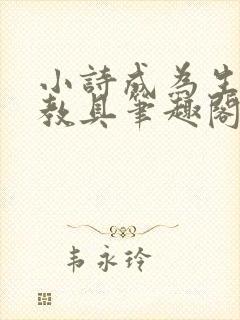 小詩成為生
教具筆趣閣
韦永玲